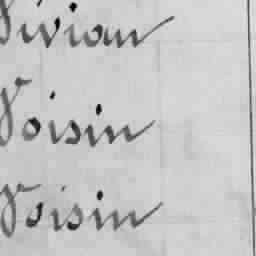 Vivian
Voisin
Voisin